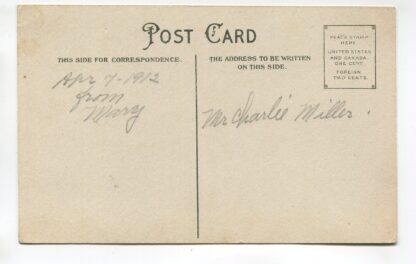 POST CARD
THIS SIDE FOR CORRESPONDENCE.
THE ADDRESS TO BE WRITTEN
ON THIS SIDE.
PLACE STAMP
HERE
UNITED STATES
AND CANADA
ONE CENT.
FOREIGN
TWO CENTS.
Apr 7-1912
from
Mary
Mr Charlie Miller.